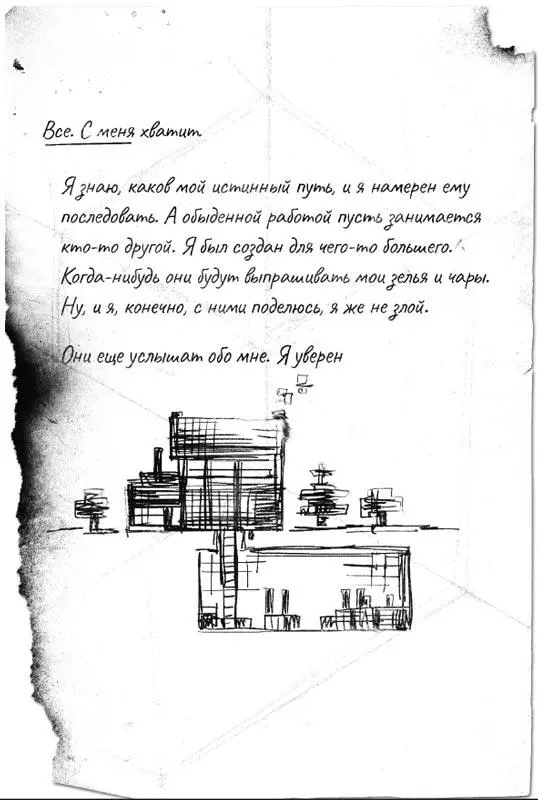 Все. С меня хватит.
Я знаю, каков мой истинный путь, и я намерен ему
последовать. А обыденной работой пусть занимается
кто-то другой. Я был создан для чего-то большего.
Когда-нибудь они будут выпрашивать мои зелья и чары.
Ну, и я, конечно, с ними поделюсь, я же не злой.
Они еще услышат обо мне. Я уверен